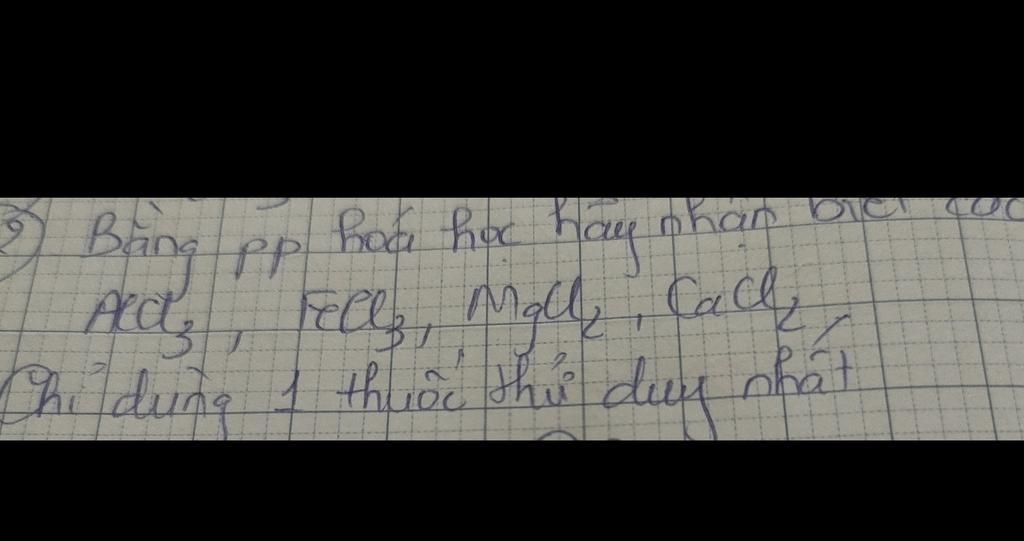 2) Bằng pp hoá học hãy nhận biết các
AlCl3, FeCl3, MgCl2, CaCl2
Chỉ dùng 1 thuốc thử duy nhất